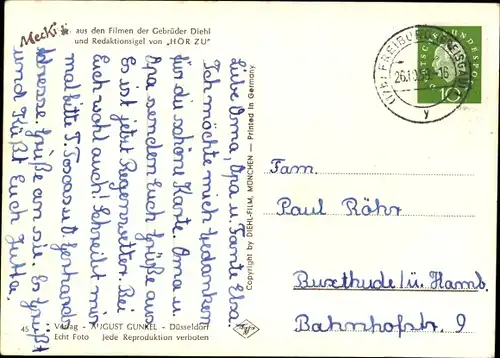 Mecki
aus den Filmen der Gebrüder Diehl
und Redaktionsigel von „HÖR ZU"
Liebe Oma, Opa u. Tante Elsa
Ich möchte mich bedanken
für die schöne Karte. Oma u.
Opa senden Euch Grüße aus
Es ist jetzt Regenwetter. Bei
Euch wohl auch! Schreibt mir
mal bitt T. u. O. Gerhards
Adresse. Grüße an sie. Es grüßt
und küßt Euch Jutta.
Copyright by DIEHL-FILM, MÜNCHEN — Printed in Germany
(17b) FREIBURG (BREISGAU)
26.10.59-16
y
DEUTSCHE BUNDESPOST
10
Fam.
Paul Röhr
Buxtehude/ü. Hamb.
Bahnhofstr. 9
45
Verlag - AUGUST GUNKEL - Düsseldorf
Echt Foto Jede Reproduktion verboten